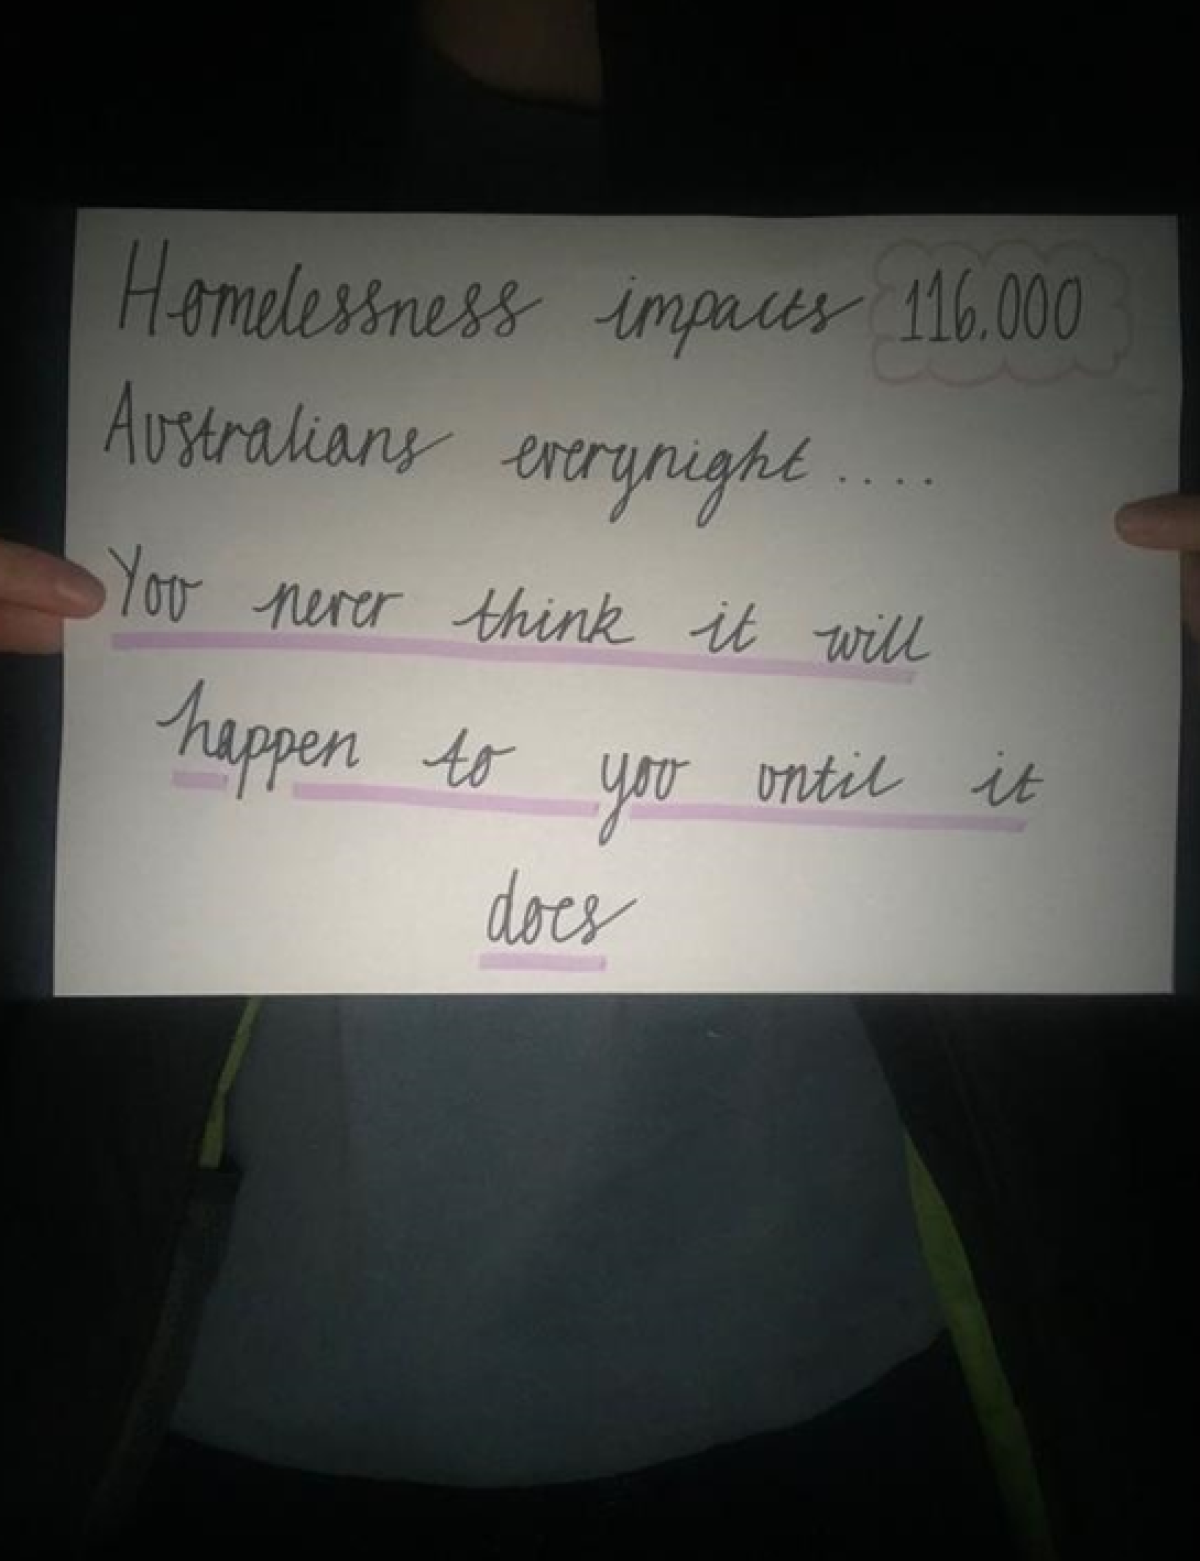 Homelessness impacts 116.000
Australians everynight ....
You never think it will
happen to you until it
does